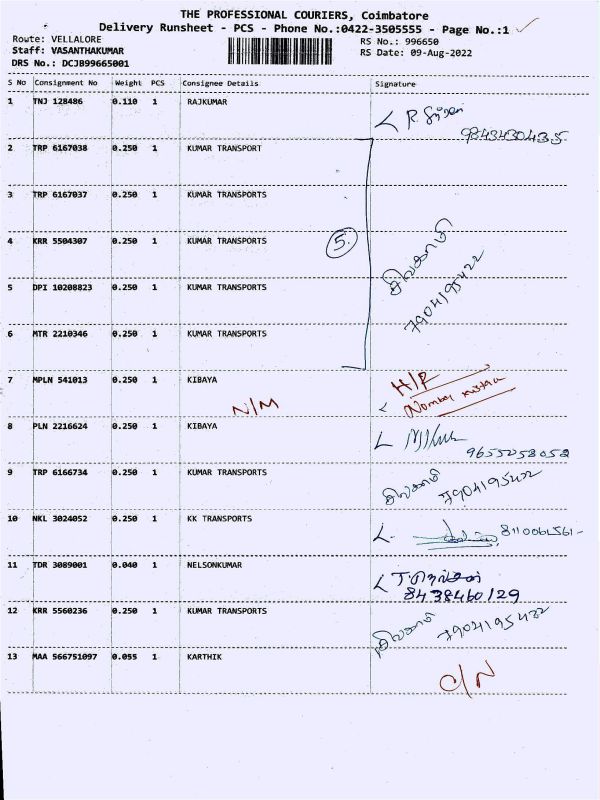 THE PROFESSIONAL COURIERS, Coimbatore
Delivery Runsheet - PCS - Phone No.:0422-3505555 - Page No.:1
Route: VELLALORE
RS No.: 996650
Staff: VASANTHAKUMAR
RS Date: 09-Aug-2022
DRS No.: DCJB99665001
S No Consignment No Weight PCS Consignee Details Signature
1 TNJ 128486 0.110 1 RAJKUMAR
9843430435
2 TRP 6167038 0.250 1 KUMAR TRANSPORT
3 TRP 6167037 0.250 1 KUMAR TRANSPORTS
4 KRR 5504307 0.250 1 KUMAR TRANSPORTS 5
சிவகாமி
7904195422
5 DPI 10208823 0.250 1 KUMAR TRANSPORTS
6 MTR 2210346 0.250 1 KUMAR TRANSPORTS
7 MPLN 541013 0.250 1 KIBAYA H/P
N/M Nomber
8 PLN 2216624 0.250 1 KIBAYA
9655258052
9 TRP 6166734 0.250 1 KUMAR TRANSPORTS சிவகாமி 7904195422
10 NKL 3024052 0.250 1 KK TRANSPORTS
11 TDR 3089001 0.040 1 NELSONKUMAR
8438460129
12 KRR 5560236 0.250 1 KUMAR TRANSPORTS சிவகாமி 7904195422
13 MAA 566751097 0.055 1 KARTHIK
C/N